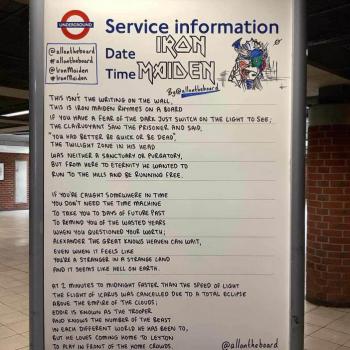 UNDERGROUND
Service information
Date
Time
IRON
MAIDEN
By @allontheboard
@allontheboard
#allontheboard
@IronMaiden
#ironmaiden
THIS ISN'T THE WRITING ON THE WALL,
THIS IS IRON MAIDEN RHYMES ON A BOARD
IF YOU HAVE A FEAR OF THE DARK JUST SWITCH ON THE LIGHT TO SEE;
THE CLAIRVOYANT SAW THE PRISONER AND SAID,
"YOU HAD BETTER BE QUICK OR BE DEAD",
THE TWILIGHT ZONE IN HIS HEAD
WAS NEITHER A SANCTUARY OR PURGATORY,
BUT FROM HERE TO ETERNITY HE WANTED TO
RUN TO THE HILLS AND BE RUNNING FREE.
IF YOU'RE CAUGHT SOMEWHERE IN TIME
YOU DON'T NEED THE TIME MACHINE
TO TAKE YOU TO DAYS OF FUTURE PAST
TO REMIND YOU OF THE WASTED YEARS
WHEN YOU QUESTIONED YOUR WORTH;
ALEXANDER THE GREAT KNOWS HEAVEN CAN WAIT,
EVEN WHEN IT FEELS LIKE
YOU'RE A STRANGER IN A STRANGE LAND
AND IT SEEMS LIKE HELL ON EARTH.
AT 2 MINUTES TO MIDNIGHT FASTER THAN THE SPEED OF LIGHT
THE FLIGHT OF ICARUS WAS CANCELLED DUE TO A TOTAL ECLIPSE
ABOVE THE EMPIRE OF THE CLOUDS;
EDDIE IS KNOWN AS THE TROOPER
AND KNOWS THE NUMBER OF THE BEAST
IN EACH DIFFERENT WORLD HE HAS BEEN TO,
BUT HE LOVES COMING HOME TO LEYTON
TO PLAY IN FRONT OF THE HOME CROWDS.
@allontheboard